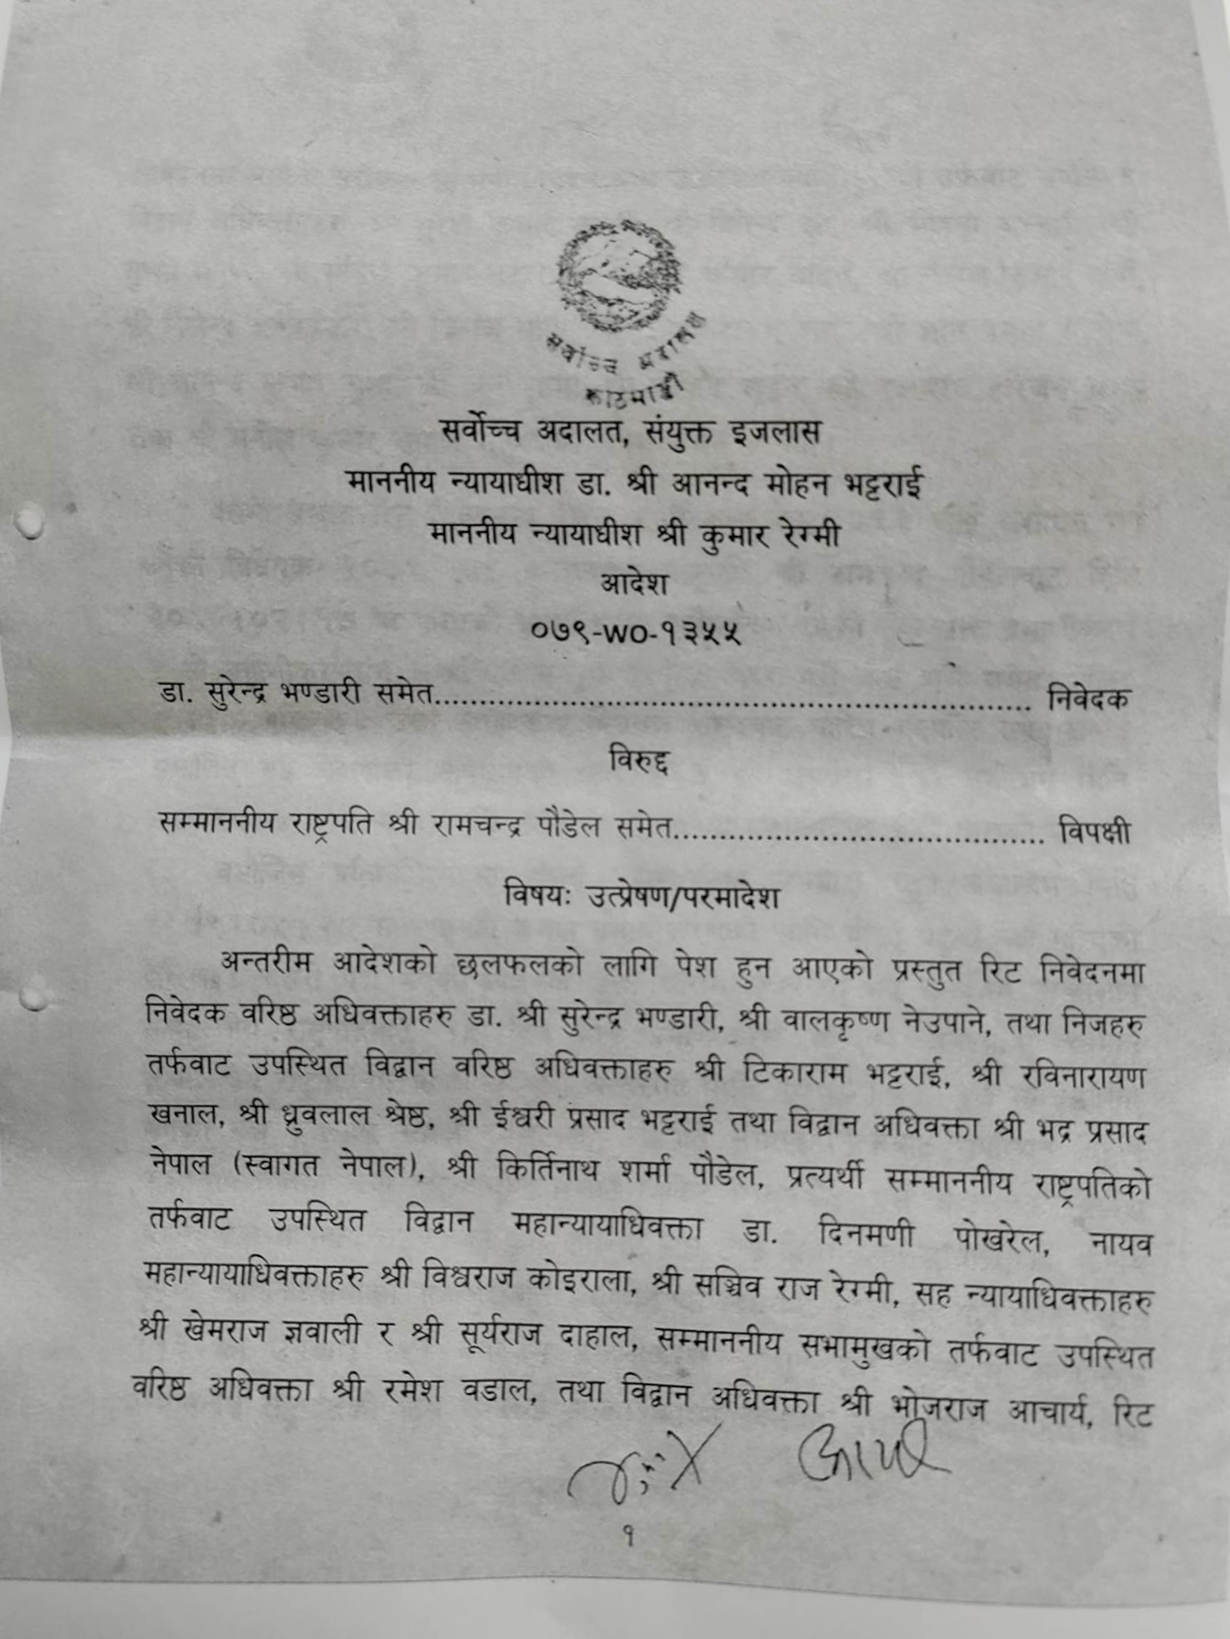 सर्वोच्च अदालत
काठमाडौं
सर्वोच्च अदालत, संयुक्त इजलास
माननीय न्यायाधीश डा. श्री आनन्द मोहन भट्टराई
माननीय न्यायाधीश श्री कुमार रेग्मी
आदेश
०७९-WO-१३५५
डा. सुरेन्द्र भण्डारी समेत.................................................................. निवेदक
विरुद्द
सम्माननीय राष्ट्रपति श्री रामचन्द्र पौडेल समेत........................................ विपक्षी
विषयः उत्प्रेषण/परमादेश
अन्तरीम आदेशको छलफलको लागि पेश हुन आएको प्रस्तुत रिट निवेदनमा
निवेदक वरिष्ठ अधिवक्ताहरु डा. श्री सुरेन्द्र भण्डारी, श्री वालकृष्ण नेउपाने, तथा निजहरु
तर्फवाट उपस्थित विद्वान वरिष्ठ अधिवक्ताहरु श्री टिकाराम भट्टराई, श्री रविनारायण
खनाल, श्री ध्रुवलाल श्रेष्ठ, श्री ईश्वरी प्रसाद भट्टराई तथा विद्वान अधिवक्ता श्री भद्र प्रसाद
नेपाल (स्वागत नेपाल), श्री किर्तिनाथ शर्मा पौडेल, प्रत्यर्थी सम्माननीय राष्ट्रपतिको
तर्फवाट उपस्थित विद्वान महान्यायाधिवक्ता डा. दिनमणी पोखरेल, नायव
महान्यायाधिवक्ताहरु श्री विश्वराज कोइराला, श्री सञ्चिव राज रेग्मी, सह न्यायाधिवक्ताहरु
श्री खेमराज ज्ञवाली र श्री सूर्यराज दाहाल, सम्माननीय सभामुखको तर्फवाट उपस्थित
वरिष्ठ अधिवक्ता श्री रमेश वडाल, तथा विद्वान अधिवक्ता श्री भोजराज आचार्य, रिट
१